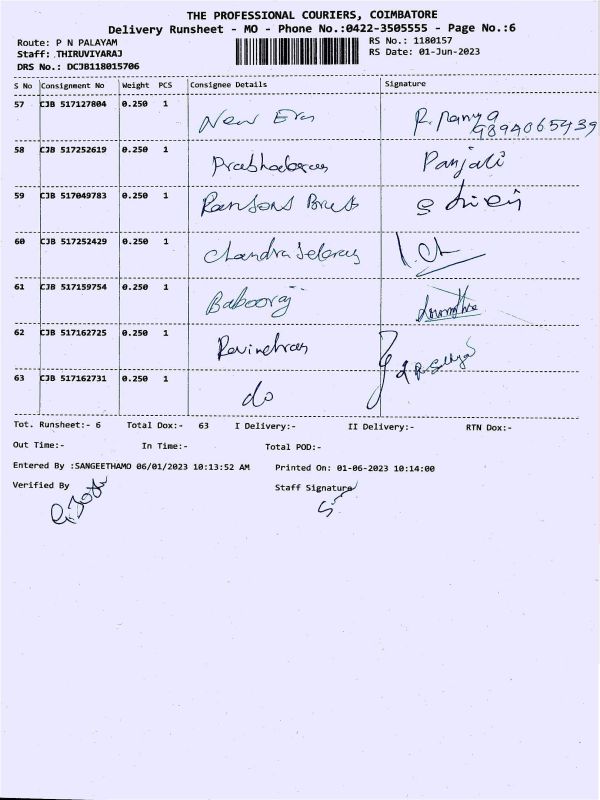 THE PROFESSIONAL COURIERS, COIMBATORE
Delivery Runsheet - MO - Phone No.:0422-3505555 - Page No.:6
Route: P N PALAYAM RS No.: 1180157
Staff: THIRUVIYARAJ RS Date: 01-Jun-2023
DRS No.: DCJB118015706
S No Consignment No Weight PCS Consignee Details Signature
57 CJB 517127804 0.250 1 New Era R. Ramya
9894065439
58 CJB 517252619 0.250 1 Prabhakaran Panjali
59 CJB 517049783 0.250 1 Ransons
60 CJB 517252429 0.250 1 Chandra Sekaran
61 CJB 517159754 0.250 1 Babooraj
62 CJB 517162725 0.250 1 Ravindran
63 CJB 517162731 0.250 1 do
Tot. Runsheet:- 6 Total Dox:- 63 I Delivery:- II Delivery:- RTN Dox:-
Out Time:- In Time:- Total POD:-
Entered By :SANGEETHAMO 06/01/2023 10:13:52 AM Printed On: 01-06-2023 10:14:00
Verified By Staff Signature